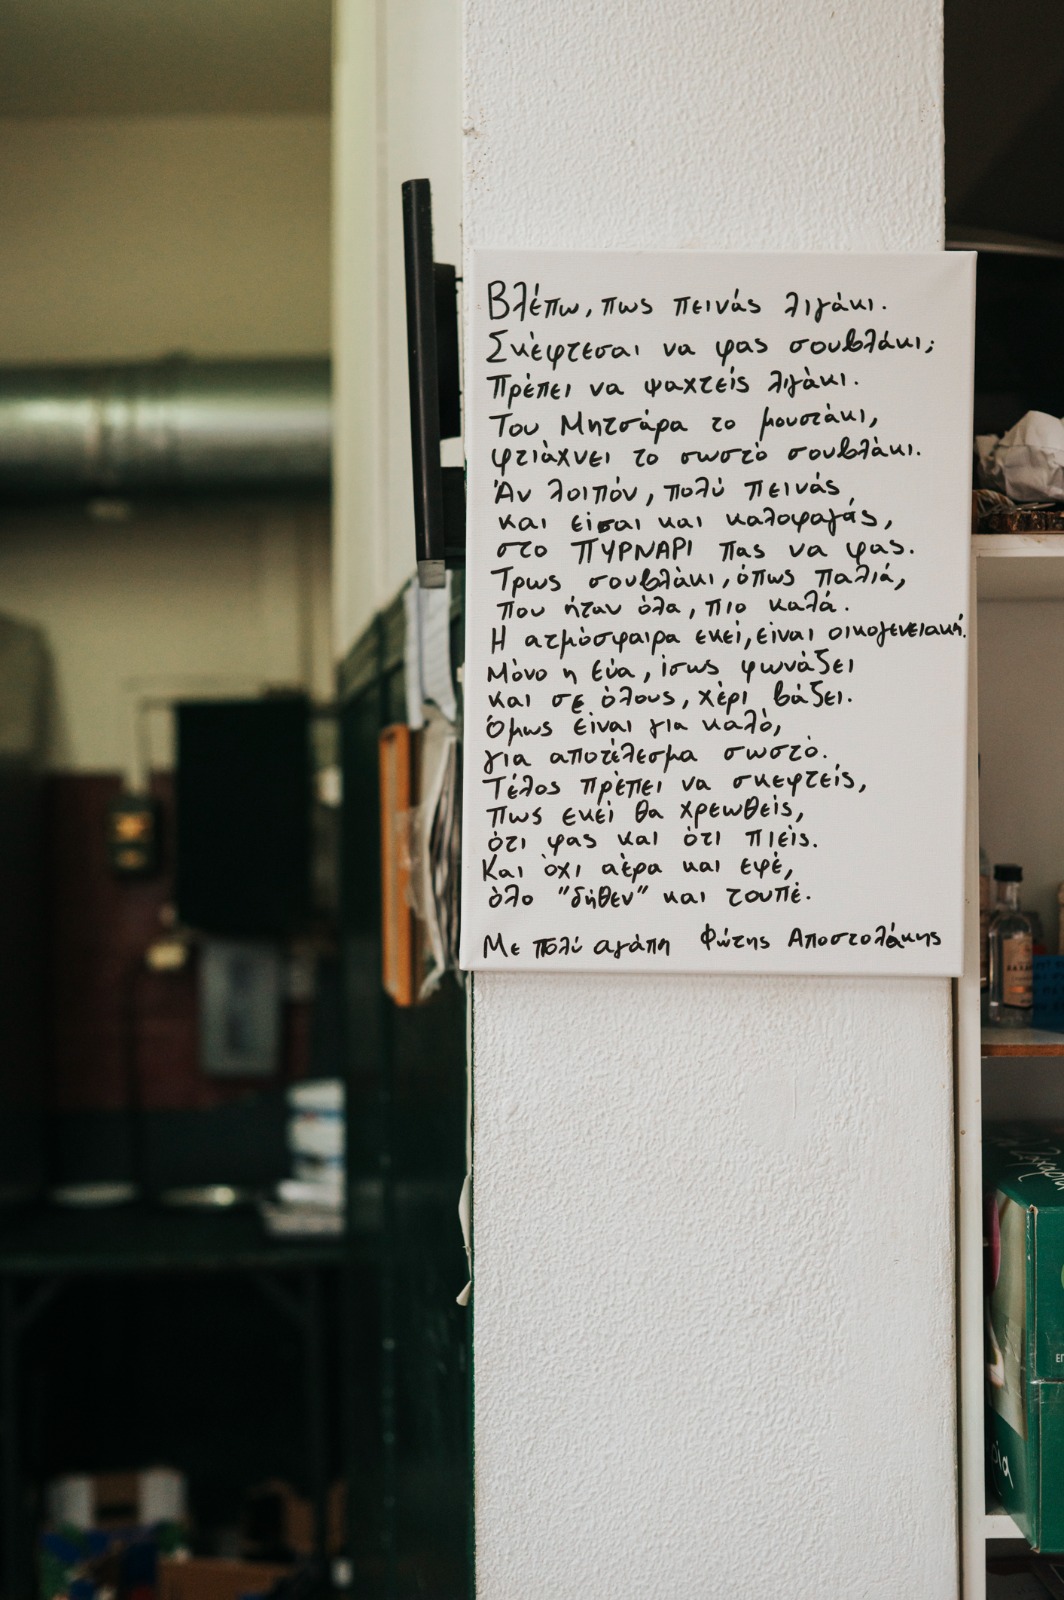 Βλέπω, πως πεινάς λιγάκι.
Σκέφτεσαι να φας σουβλάκι;
Πρέπει να ψαχτείς λιγάκι.
Του Μητσάρα το μουστάκι,
φτιάχνει το σωστό σουβλάκι.
Άν λοιπόν, πολύ πεινάς
και είσαι και καλοφαγάς,
στο ΠΥΡΝΑΡΙ πας να φας.
Τρως σουβλάκι, όπως παλιά,
που ήταν όλα, πιο καλά.
Η ατμόσφαιρα εκεί, είναι οικογενειακή.
Μόνο η Εύα, ίσως φωνάζει
και σε όλους, χέρι βάζει.
Όμως είναι για καλό,
για αποτέλεσμα σωστό.
Τέλος πρέπει να σκεφτείς,
πως εκεί θα χρεωθείς,
ότι φας και ότι πιείς.
Και όχι αέρα και εφέ,
όλο "δήθεν" και τουπέ.
Με πολύ αγάπη Φώτης Αποστολάκης